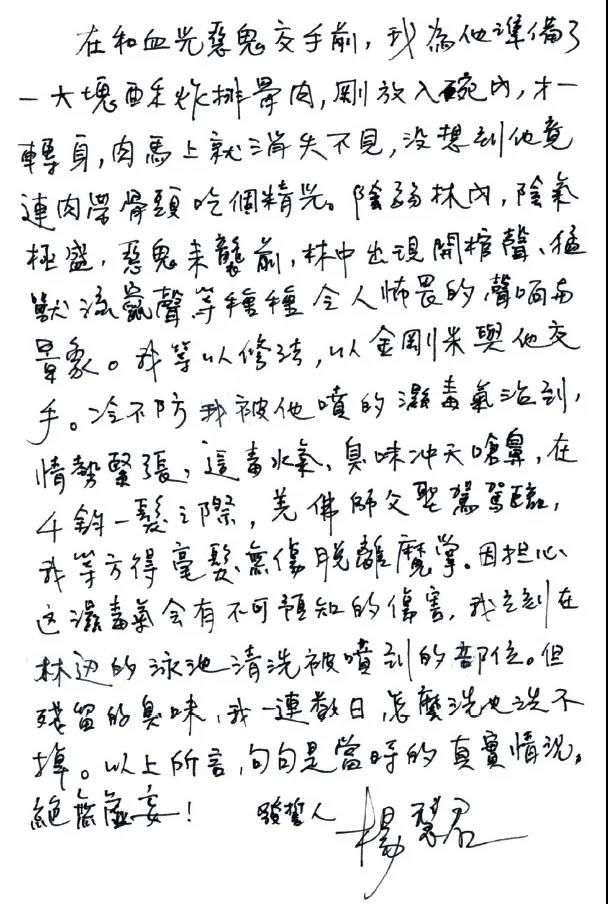 在和血光惡鬼交手前，我為他準備了
一大塊酥炸排骨肉，剛放入碗內，才一
轉身，肉馬上就消失不見，沒想到他竟
連肉帶骨頭吃個精光。陰弱林內，陰氣
極盛，惡鬼来襲前，林中出現開棺聲、猛
獸流竄聲等種種令人怖畏的聲响與
景象。我等以修法，以金剛米與他交
手。冷不防我被他噴的濕毒氣沾到，
情勢緊張，這毒水氣，臭味冲天嗆鼻，在
千鈞一髮之際，羌佛師父聖駕駕臨，
我等方得毫髮無傷脱離魔掌。因担心
这濕毒氣会有不可預知的傷害，我立刻在
林边的泳池清洗被噴到的部位。但
殘留的臭味，我一連數日，怎麼洗也洗不
掉。以上所言，句句是當時的真實情況，
絕無虛妄！ 發誓人 楊慧君